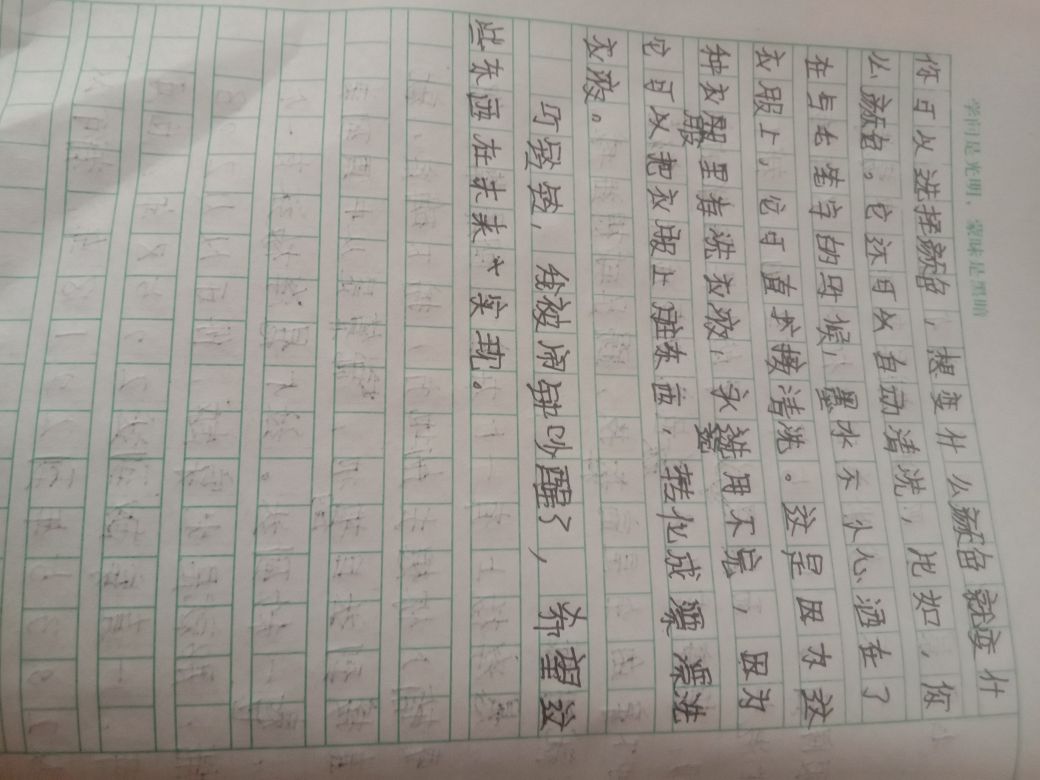 学问是光明，蒙昧是黑暗
你可以选择颜色，想变什么颜色就变什
么颜色。它还可以自动清洗，比如，你
在写毛笔字的时候，墨水不小心洒在了
衣服上。它可直接清洗。这是因为这
种衣服里有洗衣液，永远用不完，因为
它可以把衣服上脏东西，转化成漂洗
衣液。
叮呤呤，我被闹钟吵醒了，希望这
些东西在未来实现。